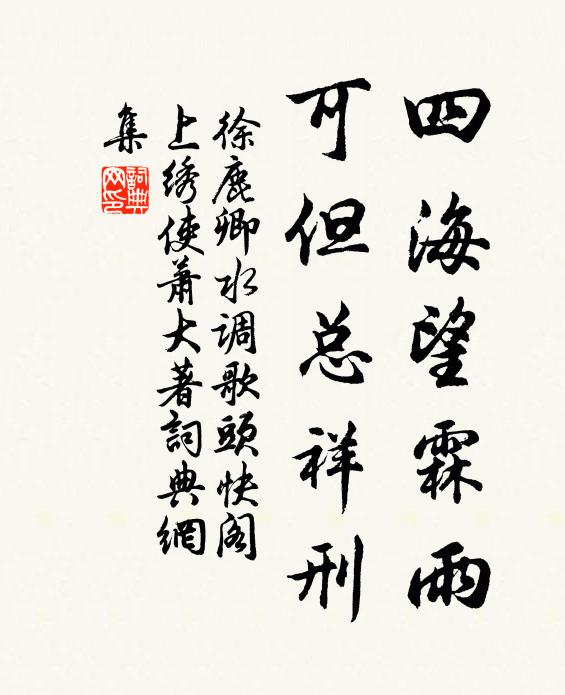 四海望霖雨
可但总祥刑
徐鹿卿水调歌頭快阁
上绣使萧大著詞典網
集
詞典
网印